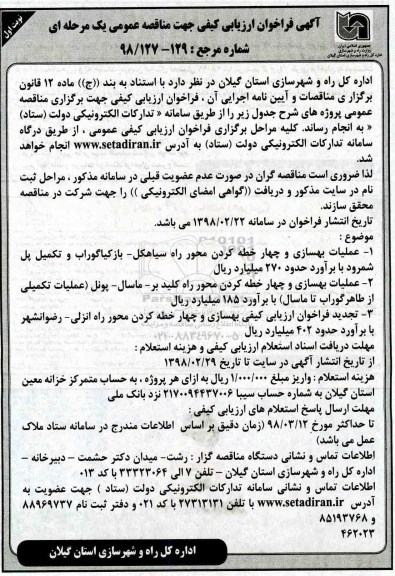 نوبت اول
آگهی فراخوان ارزیابی کیفی جهت مناقصه عمومی یک مرحله ای
شماره مرجع : ۱۲۹- ۹۸/۱۲۷
جمهوری اسلامی ایران
وزارت راه و شهرسازی
اداره کل راه و شهرسازی استان گیلان
اداره کل راه و شهرسازی استان گیلان در نظر دارد با استناد به بند ((ج)) ماده ۱۲ قانون
برگزار ی مناقصات و آیین نامه اجرایی آن ، فراخوان ارزیابی کیفی جهت برگزاری مناقصه
عمومی پروژه های شرح جدول زیر را از طریق سامانه « تدارکات الکترونیکی دولت (ستاد)
« به انجام رساند. کلیه مراحل برگزاری فراخوان ارزیابی کیفی عمومی ، از طریق درگاه
سامانه تدارکات الکترونیکی دولت (ستاد) به آدرس www.setadiran.ir انجام خواهد
شد.
لذا ضروری است مناقصه گران در صورت عدم عضویت قبلی در سامانه مذکور ، مراحل ثبت
نام در سایت مذکور و دریافت ((گواهی امضای الکترونیکی )) را جهت شرکت در مناقصه
محقق سازند.
تاریخ انتشار فراخوان در سامانه ۱۳۹۸/۰۲/۲۲ می باشد.
موضوع :
۱- عملیات بهسازی و چهار خطه کردن محور راه سیاهکل- بازکیاگوراب و تکمیل پل
شمرود با برآورد حدود ۲۷۰ میلیارد ریال
۲- عملیات بهسازی و چهار خطه کردن محور راه کلید بر- ماسال- پونل (عملیات تکمیلی
از طاهرگوراب تا ماسال) با برآورد ۱۸۵ میلیارد ریال
۳- تجدید فراخوان ارزیابی کیفی بهسازی و چهار خطه کردن محور راه انزلی- رضوانشهر
با برآورد حدود ۴۰۲ میلیارد ریال
مهلت دریافت اسناد استعلام ارزیابی کیفی و هزینه استعلام :
از تاریخ انتشار آگهی در سایت تا تاریخ ۱۳۹۸/۰۲/۲۹
هزینه استعلام : واریز مبلغ ۱/۰۰۰/۰۰۰ ریال به ازای هر پروژه ، به حساب متمرکز خزانه معین
استان گیلان به شماره حساب سیبا ۲۱۷۰۰۹۴۴۳۷۰۰۶ نزد بانک ملی
مهلت ارسال پاسخ استعلام های ارزیابی کیفی :
تا حداکثر مورخ ۹۸/۰۳/۱۲ (زمان دقیق بر اساس اطلاعات مندرج در سامانه ستاد ملاک
عمل می باشد)
اطلاعات تماس و نشانی دستگاه مناقصه گزار : رشت- میدان دکتر حشمت - دبیرخانه -
اداره کل راه و شهرسازی استان گیلان - تلفن ۷ الی ۳۳۳۲۳۰۶۴ با کد ۰۱۳
اطلاعات تماس و نشانی سامانه تدارکات الکترونیکی دولت (ستاد ) جهت عضویت به
آدرس www.setadiran.ir با تلفن ۲۷۳۱۳۱۳۱ با کد ۰۲۱ و دفتر ثبت نام ۸۸۹۶۹۷۳۷
و ۸۵۱۹۳۷۶۸
۴۶۲۰۲۳
اداره کل راه و شهرسازی استان گیلان